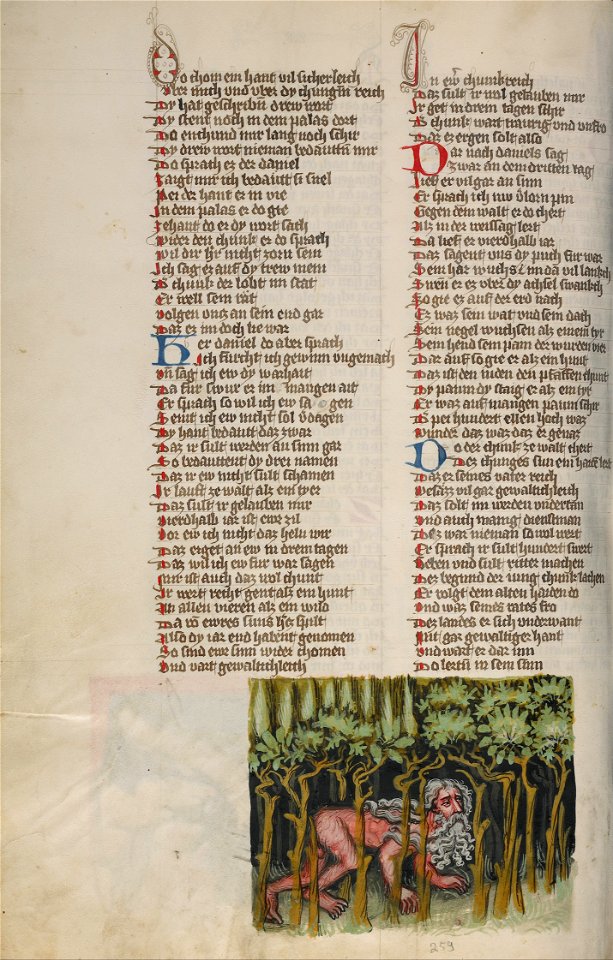 Do chom ein hant vil sicherleich
Vber mich vnd vber dy chungin reich
Dy hat geschribn drew wort
Dy stent noch in dem palas dort
Do enchund mir lang noch schir
Dy drew wort nieman bedauttn mir
Do sprach er der daniel
Zaigt mir ich bedautt si snel
Pei der hant er in vie
In dem palas er do gie
Zehant do er dy wort sach
Wider den chunk er do sprach
Wil dir hr nicht zorn sein
Ich sag er auf dy trew mein
Der chunk der lobt im stat
Er well sein
Volgen vnaz an sein end gar
Daz er im doch lie war
Her daniel do aber sprach
Ich furcht ich gewinn vngemach
Vn sag ich ew dy warhait
Da fur swur er im mangen ait
Er sprach so wil ich ew sagen
Seint ich ew nicht sol v̄dagen
Dy hant bedautt daz zwar
Daz ir sult werden an sinn gar
So bedauttent dy drei namen
Daz ir ew nicht sult schamen
Ir lauft ze walt alz ein tyer
Daz sult ir gelauben mir
Vierdhalb iar ist ewr zil
Vor ew ich nicht daz heln wil
Daz erget an ew in drein tagen
Daz wil ich ew fur war sagen
Mir ist auch daz wol chunt
Ir wert recht gent alz ein hunt
An allen vieren alz ein wild
Da vō ewers suns h's spilt
Also dy iar end habent genomen
So sind ewr sinn wider chomen
Vnd vart gewaltichleich
In ew' chunkreich
Daz sult ir wol gelauben mir
Ir get in drein tagen schir
Der chunk wart traurig vnd vnfro
Daz er ergen solt also
Dar nach daniels sag
Zwar an dem dritten tag
Lief er vil gar an sinn
Er sprach ich
Gegen dem walt er do chert
Alz in der weissag lert
Da lief er vierdhalb iar
Daz sagent vns dy puch fur war
Sein har wuchs im da vil lankch
Swen er er vber dy achsel swankch
So gie er auf der erd nach
Er waz sein wat vnd sein dach
Sein negel wuchsen alz einem tyr
Sein hend sein pain der wurden vier
Dar auf so gie er alz ein hunt
Daz ist den iuden den pfaffen chunt
Dy paum dy staig er alz ein tyr
Er waz auf mangen paum schir
Der pei hundert ellen hoch waz
Wunder daz waz daz er genaz
Do der chunk ze walt chert
Des chunges sun ein
Daz er seines vater reich
Besazz vil gar gewaltichleich
Daz solt im werden vndertan
Vnd auch manig dienstman
Dez waz nieman so wol wert
Er sprach ir sult hundert swert
Geben vnd sult ritter machen
Dez begund der iung chunk lachen
Er volgt dem alten haiden do
Vnd waz seines rates fro
Dez landes er sich vnderwant
Mit gar gewaltiger hant
Vnd wart er dar inn
Do lert in sein sinn
259